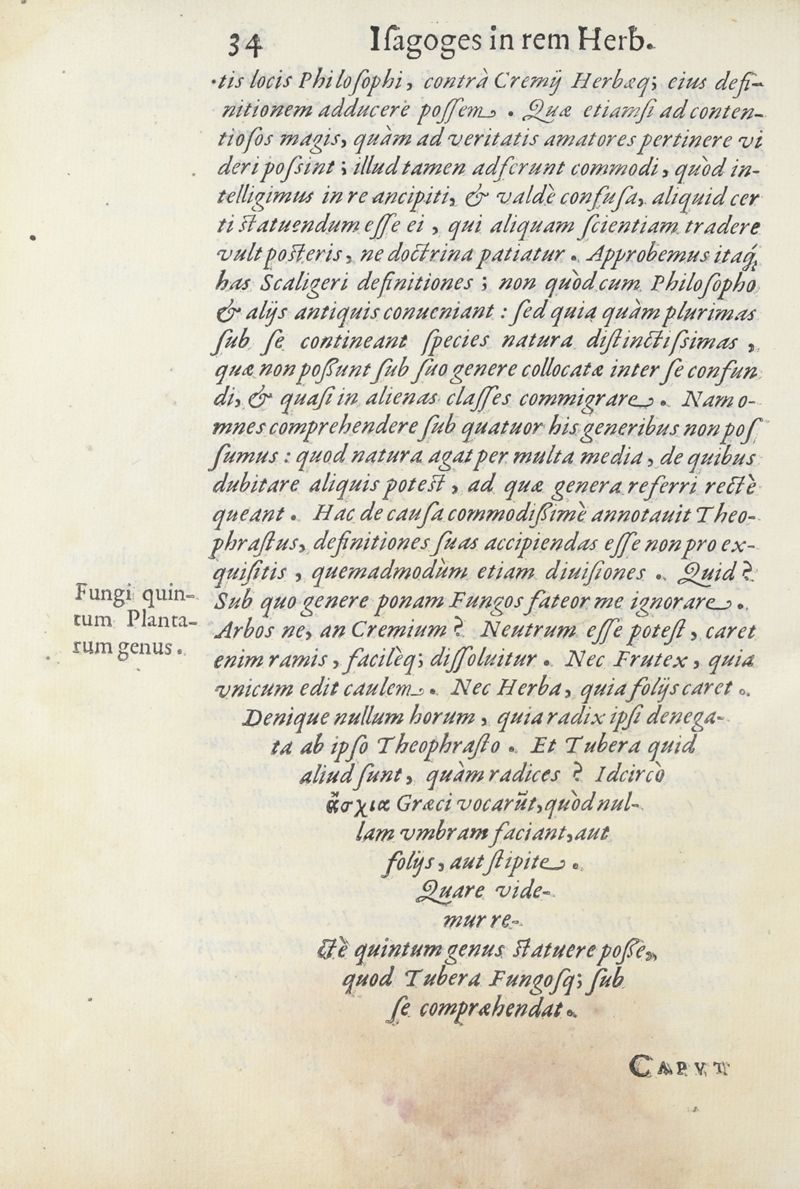 34 Iſagoges in rem Herb.
tis locis Philoſophi, contrà Cremij Herbæq; eius defi-
nitionem adducere poſſem. Quæ etiamſi ad conten-
tioſos magis, quàm ad veritatis amatores pertinere vi
deri poſsint; illud tamen adferunt commodi, quòd in-
telligimus in re ancipiti, & valdè confuſa, aliquid cer
ti ſtatuendum eſſe ei, qui aliquam ſcientiam tradere
vult poſteris, ne doctrina patiatur. Approbemus itaq́;
has Scaligeri definitiones; non quòd cum Philoſopho
& alijs antiquis conueniant: ſed quia quàm plurimas
ſub ſe contineant ſpecies natura diſtinctiſsimas,
quæ non poßunt ſub ſuo genere collocatæ inter ſe confun
di, & quaſi in alienas claſſes commigrare. Nam o-
mnes comprehendere ſub quatuor his generibus non poſ
ſumus: quod natura agat per multa media, de quibus
dubitare aliquis poteſt, ad quæ genera referri rectè
queant. Hac de cauſa commodißimè annotauit Theo-
phraſtus, definitiones ſuas accipiendas eſſe non pro ex-
quiſitis, quemadmodùm etiam diuiſiones. Quid?
Fungi quin-
tum Planta-
rum genus.
Sub quo genere ponam Fungos fateor me ignorare.
Arbos ne, an Cremium? Neutrum eſſe poteſt, caret
enim ramis, facilèq; diſſoluitur. Nec Frutex, quia
vnicum edit caulem. Nec Herba, quia folijs caret.
Denique nullum horum, quia radix ipſi denega-
ta ab ipſo Theophraſto. Et Tubera quid
aliud ſunt, quàm radices? Idcircò
ἄσχια Græci vocarūt, quòd nul-
lam vmbram faciant, aut
folijs, aut ſtipite.
Quare vide-
mur re-
ctè quintum genus ſtatuere poße,
quod Tubera Fungoſq; ſub
ſe compræhendat.
CAPVT